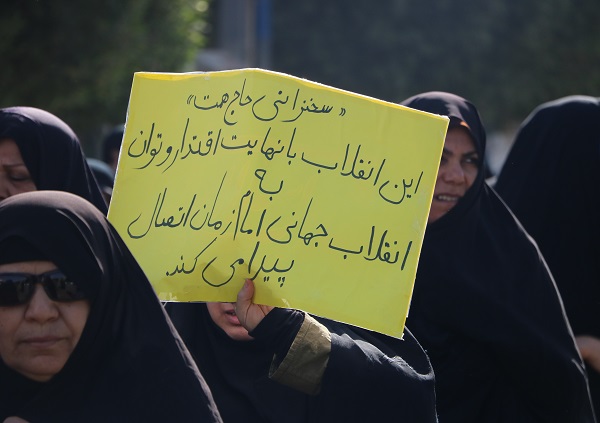 «سخنرانی حاج همت»
این انقلاب با نهایت اقتدار و توان
به
انقلاب جهانی امام زمان اتصال
پیدا می کند.